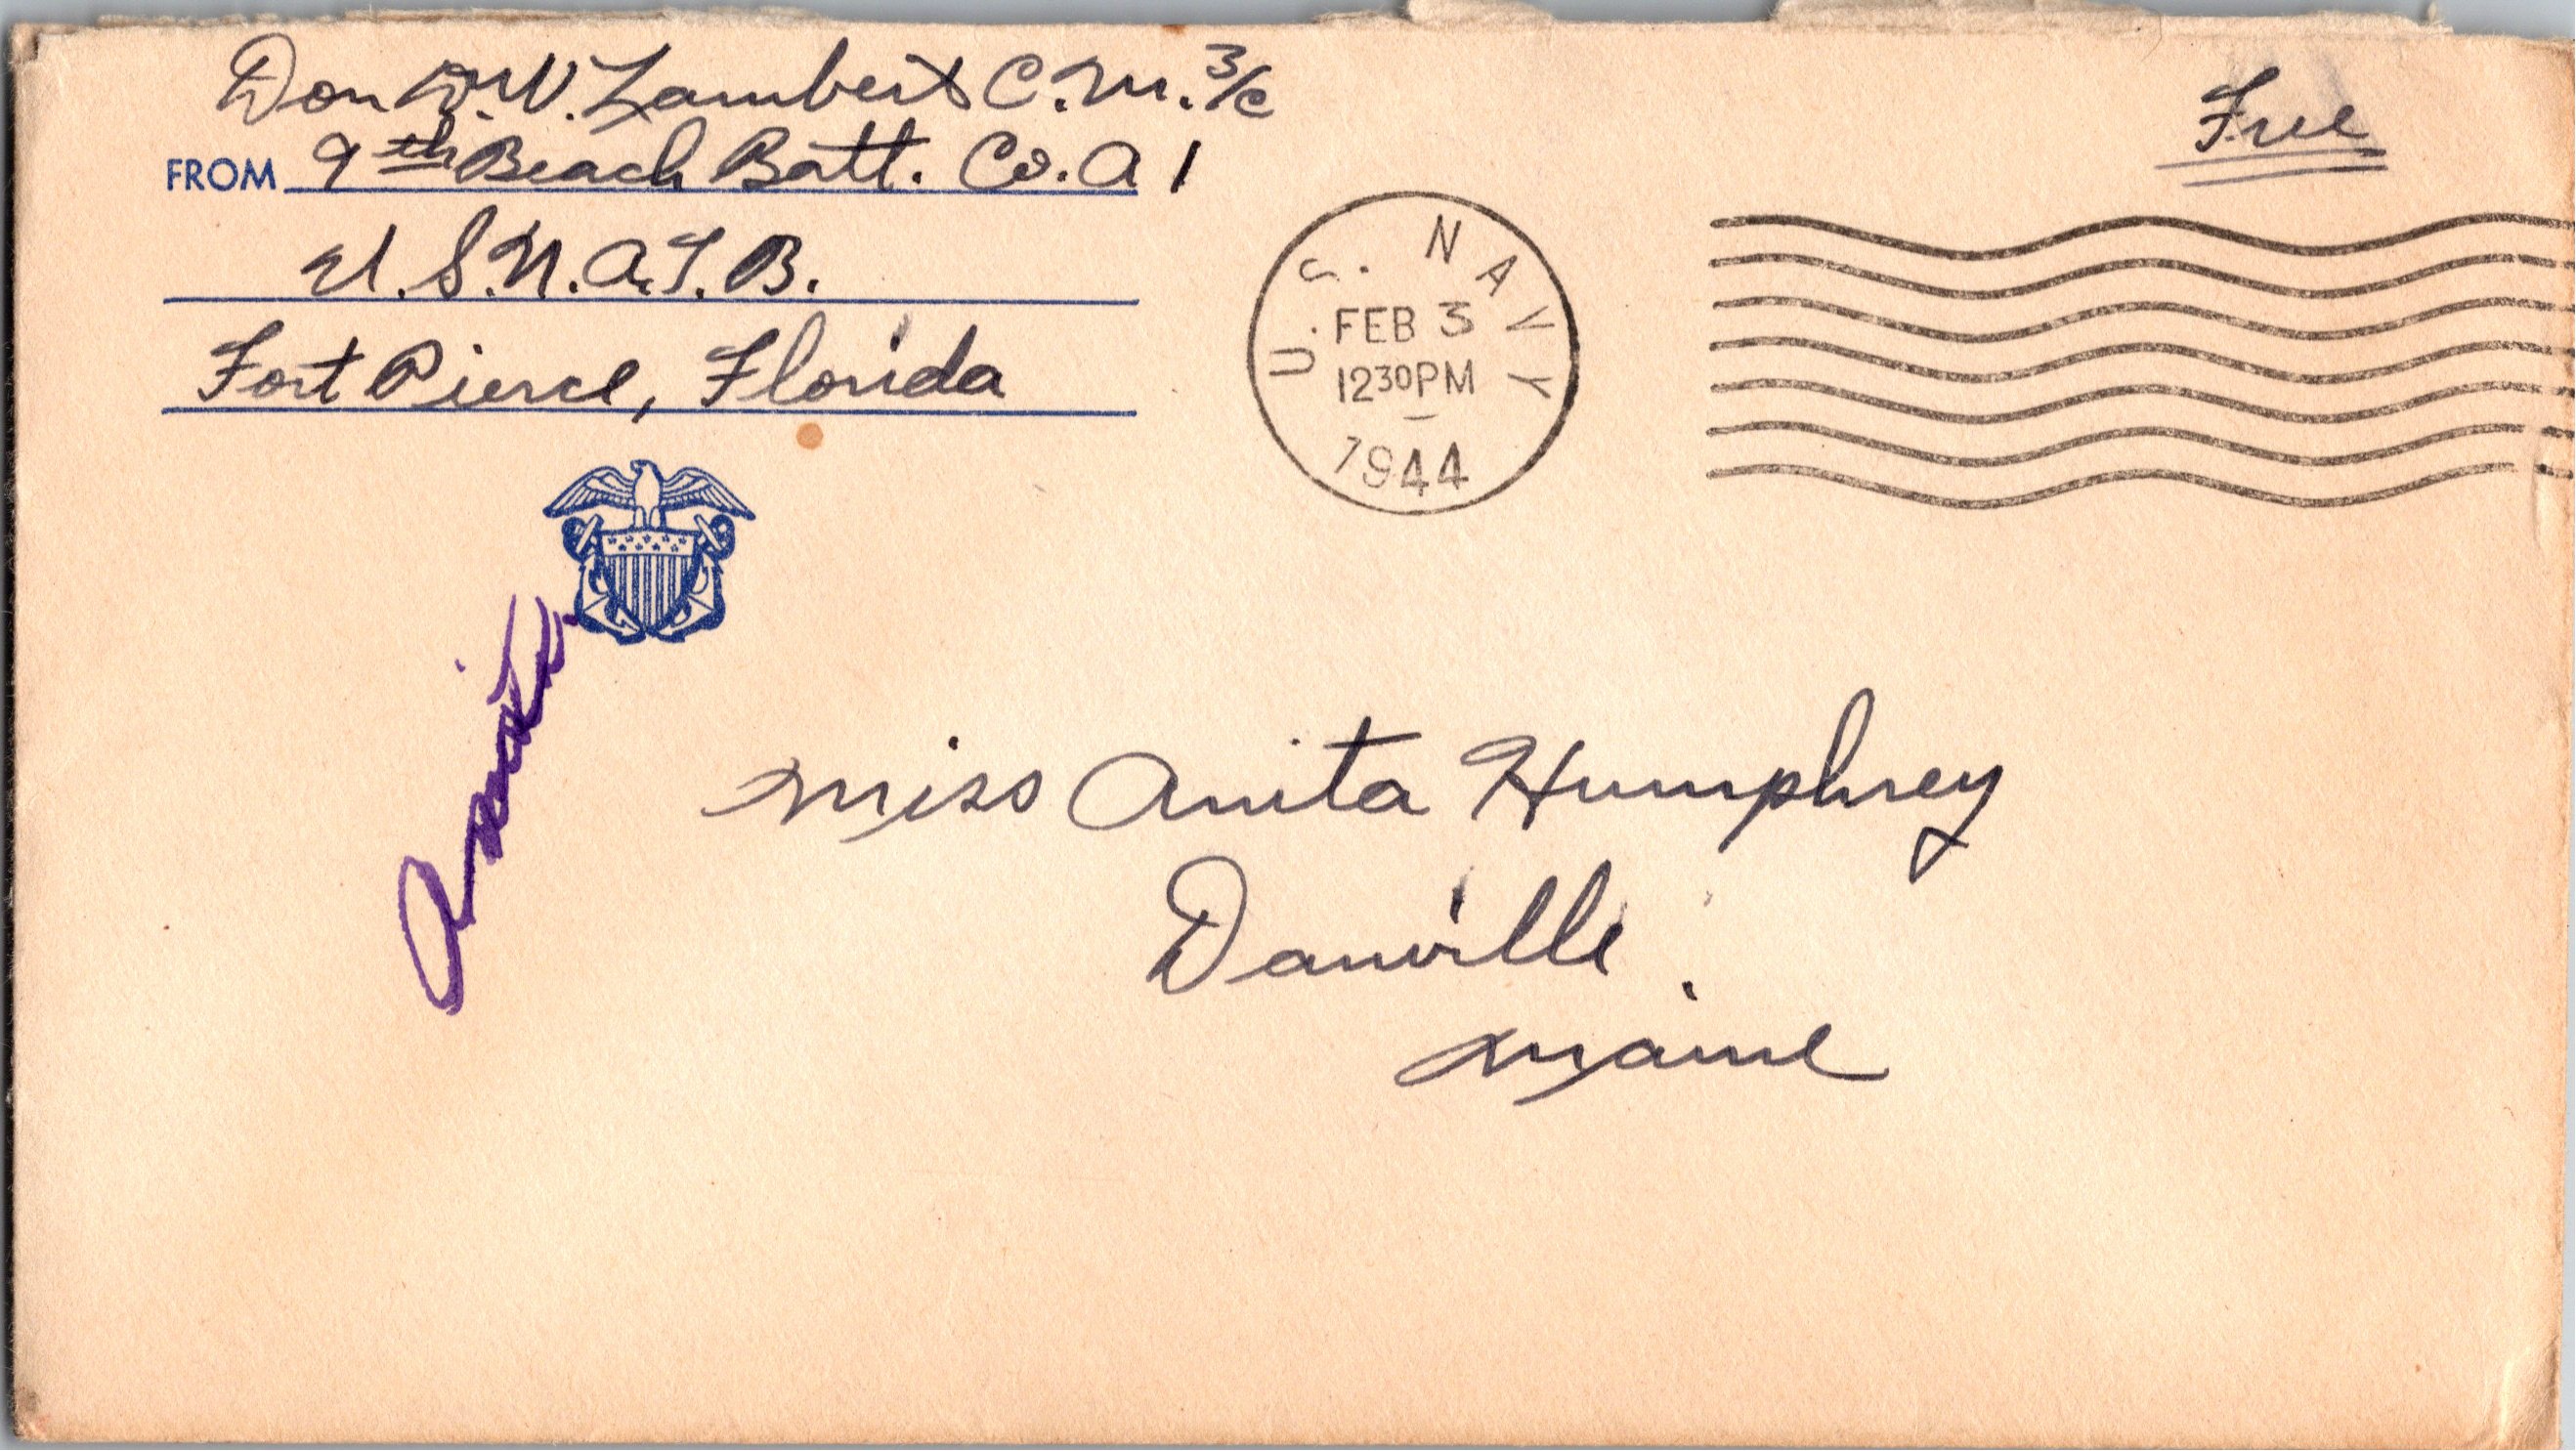 Don W. Lambert C.M. 3/c
FROM 9th Beach Batt. Co. A 1
U.S.N.A.T.B.
Fort Pierce, Florida
Free
U.S. NAVY
FEB 3
1230PM
1944
Anita
Miss Anita Humphrey
Danville,
Maine